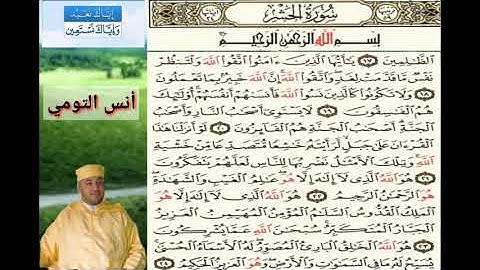 سُورَةُ الحَشْرِ
بِسْمِ اللَّهِ الرَّحْمَٰنِ الرَّحِيمِ
الظَّٰلِمِينَ ١٧ يَٰأَيُّهَا الَّذِينَ ءَامَنُوا اتَّقُوا اللَّهَ وَلْتَنظُرْ
نَفْسٌ مَّا قَدَّمَتْ لِغَدٍ وَاتَّقُوا اللَّهَ إِنَّ اللَّهَ خَبِيرٌ بِمَا تَعْمَلُونَ
١٨ وَلَا تَكُونُوا كَالَّذِينَ نَسُوا اللَّهَ فَأَنسَىٰهُمْ أَنفُسَهُمْ أُولَٰئِكَ
هُمُ الْفَٰسِقُونَ ١٩ لَا يَسْتَوِي أَصْحَٰبُ النَّارِ وَأَصْحَٰبُ
الْجَنَّةِ أَصْحَٰبُ الْجَنَّةِ هُمُ الْفَائِزُونَ ٢٠ لَوْ أَنزَلْنَا هَٰذَا
الْقُرْءَانَ عَلَىٰ جَبَلٍ لَّرَأَيْتَهُ خَٰشِعًا مُّتَصَدِّعًا مِّنْ خَشْيَةِ
اللَّهِ وَتِلْكَ الْأَمْثَٰلُ نَضْرِبُهَا لِلنَّاسِ لَعَلَّهُمْ يَتَفَكَّرُونَ
٢١ هُوَ اللَّهُ الَّذِي لَا إِلَٰهَ إِلَّا هُوَ عَٰلِمُ الْغَيْبِ وَالشَّهَٰدَةِ
هُوَ الرَّحْمَٰنُ الرَّحِيمُ ٢٢ هُوَ اللَّهُ الَّذِي لَا إِلَٰهَ إِلَّا هُوَ
الْمَلِكُ الْقُدُّوسُ السَّلَٰمُ الْمُؤْمِنُ الْمُهَيْمِنُ الْعَزِيزُ
الْجَبَّارُ الْمُتَكَبِّرُ سُبْحَٰنَ اللَّهِ عَمَّا يُشْرِكُونَ
٢٣ هُوَ اللَّهُ الْخَٰلِقُ الْبَارِئُ الْمُصَوِّرُ لَهُ الْأَسْمَاءُ الْحُسْنَىٰ
يُسَبِّحُ لَهُ مَا فِي السَّمَٰوَٰتِ وَالْأَرْضِ وَهُوَ الْعَزِيزُ الْحَكِيمُ ٢٤
إِيَّاكَ نَعْبُدُ
وَإِيَّاكَ نَسْتَعِينُ
أنس التومي